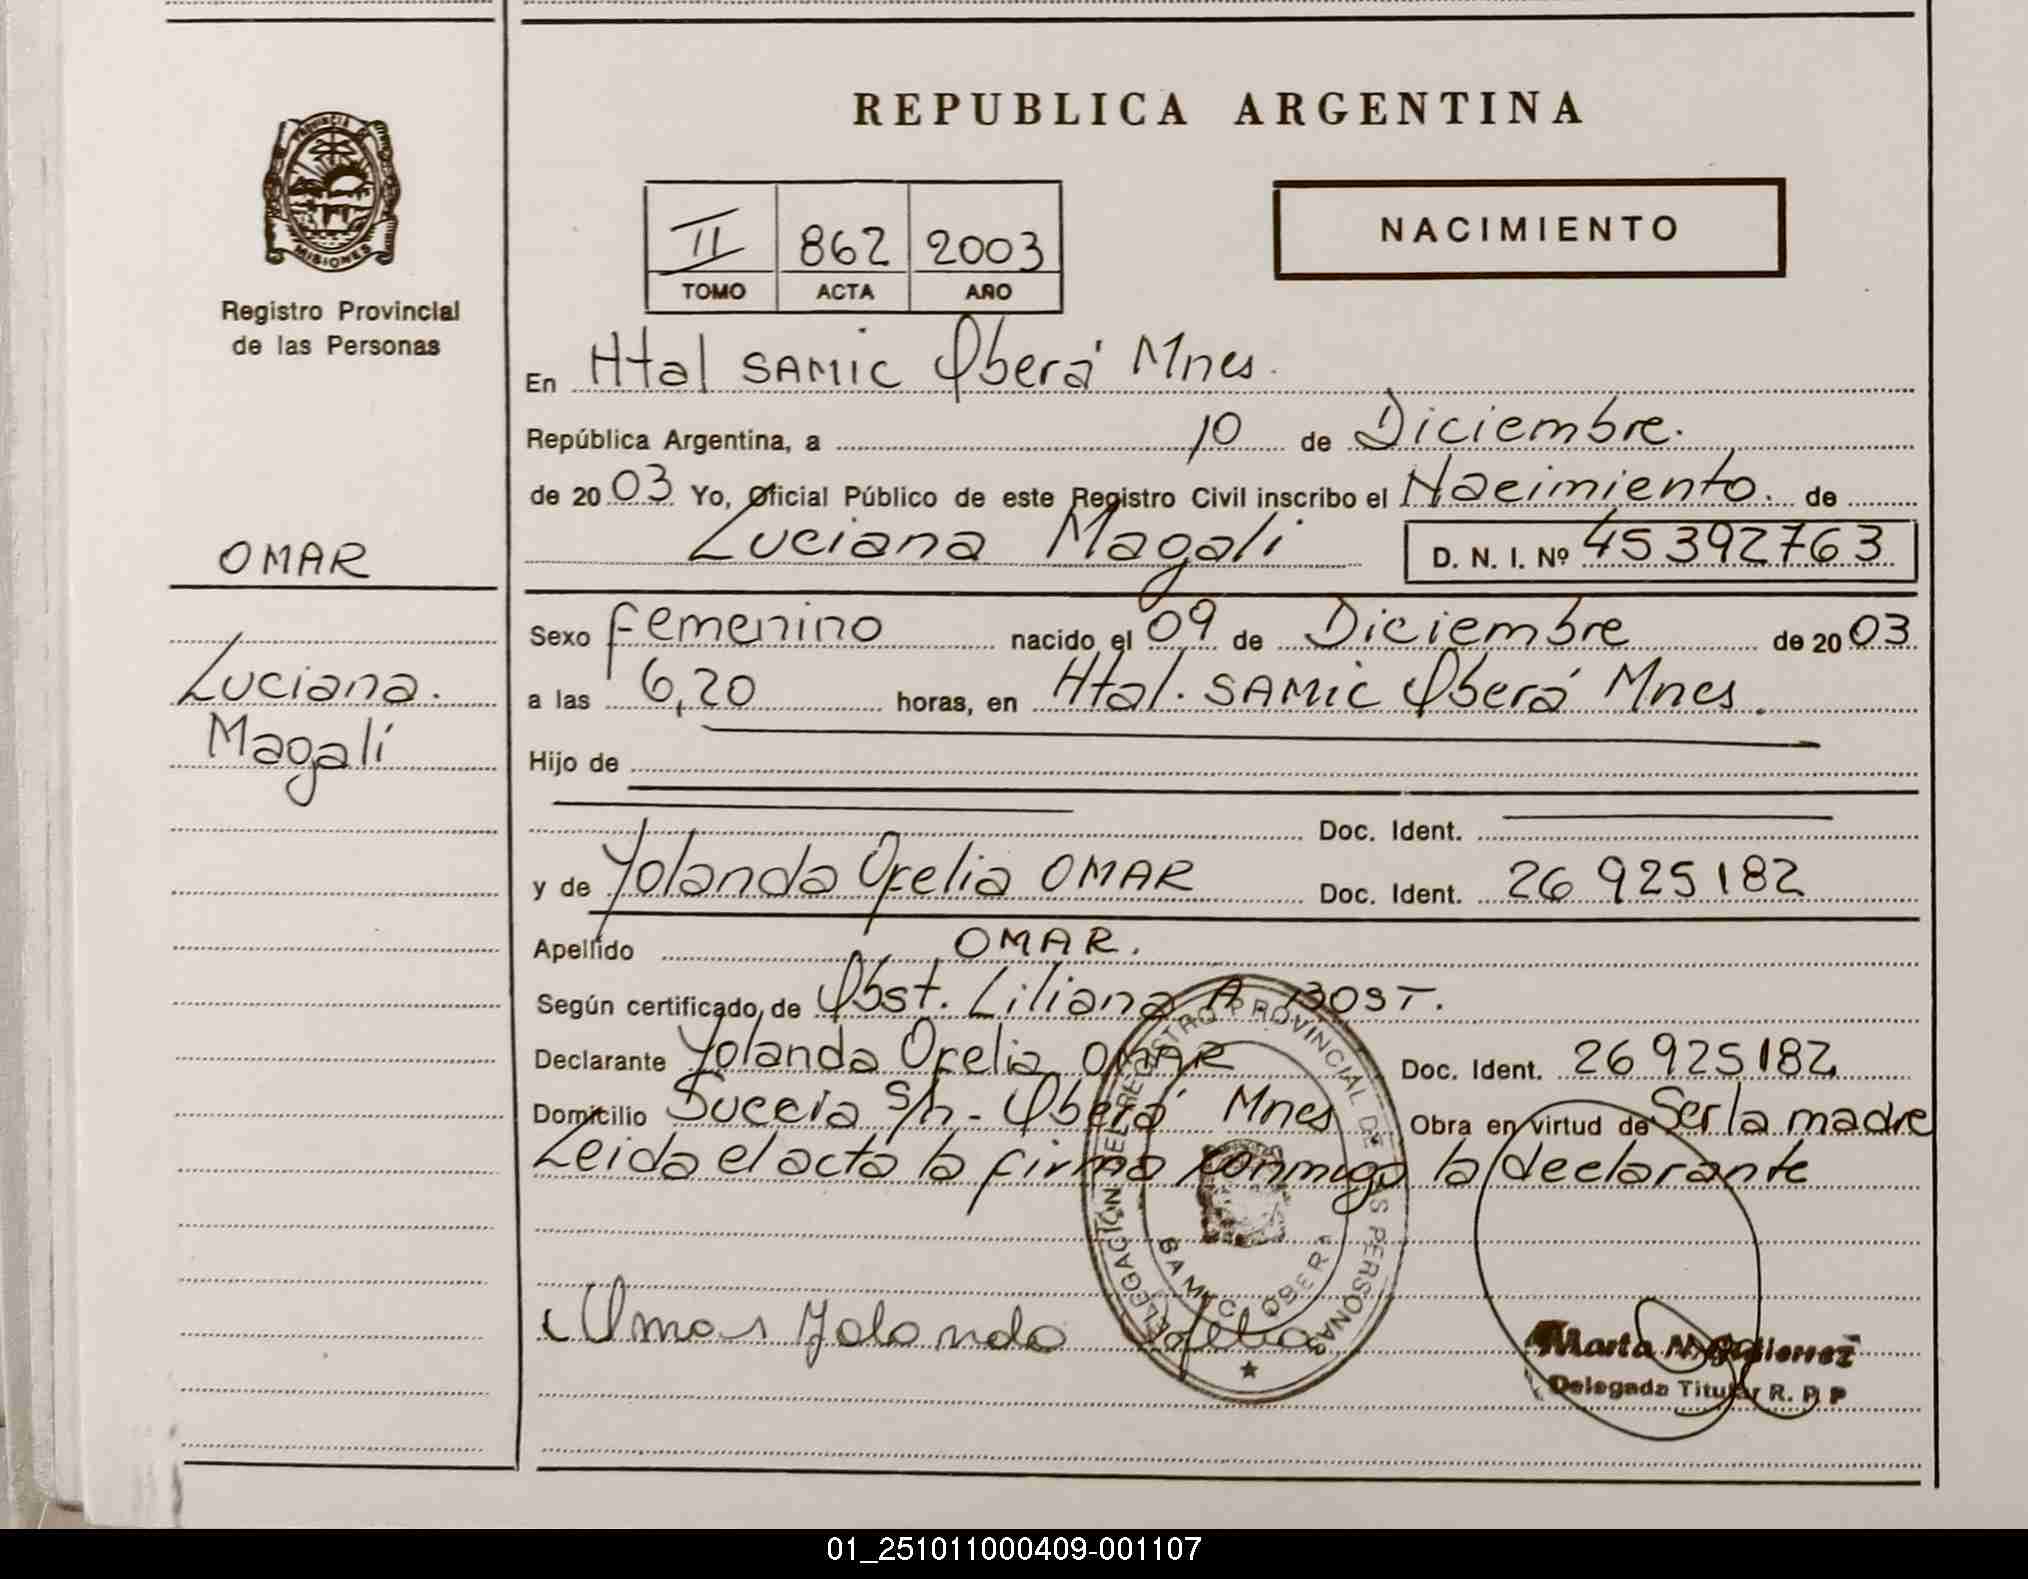 REPUBLICA ARGENTINA
PROVINCIA DE
MISIONES
Registro Provincial
de las Personas
II 862 2003
TOMO ACTA AÑO
NACIMIENTO
En Htal SAMIC Oberá Mnes.
República Argentina, a 10 de Diciembre.
de 2003 Yo, Oficial Público de este Registro Civil inscribo el Nacimiento. de
Luciana Magali D. N. I. Nº 45392763
OMAR
Luciana.
Magalí
Sexo femenino nacido el 09 de Diciembre de 2003
a las 6,20 horas, en Htal. SAMIC Oberá Mnes.
Hijo de
Doc. Ident.
y de Yolanda Ofelia OMAR Doc. Ident. 26 925182
Apellido OMAR.
Según certificado de Obst. Liliana A BOST.
Declarante Yolanda Ofelia OMAR Doc. Ident. 26 925182
Domicilio Suecia s/n - Oberá Mnes Obra en virtud de Ser la madre
Leida el acta la firma conmigo la declarante
Omar Yolanda Ofelia
DELEGACION DEL REGISTRO PROVINCIAL DE LAS PERSONAS
SAMIC OBERA
Marta N. Gutierrez
Delegada Titular R. P. P
01_251011000409-001107